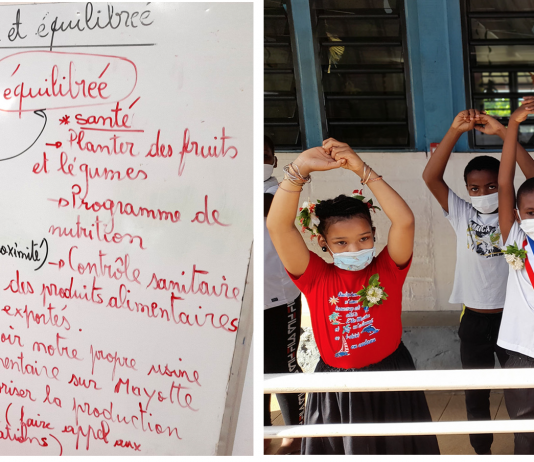 et équilibréé
équilibréé
* santé
→ Planter des fruits
et légumes
→ Programme de
nutrition
oximité) → Contrôle sanitaire
des produits alimentaires
exportés.
oir notre propre usine
mentaire sur Mayotte
oriser la production
(faire appel aux
ations)